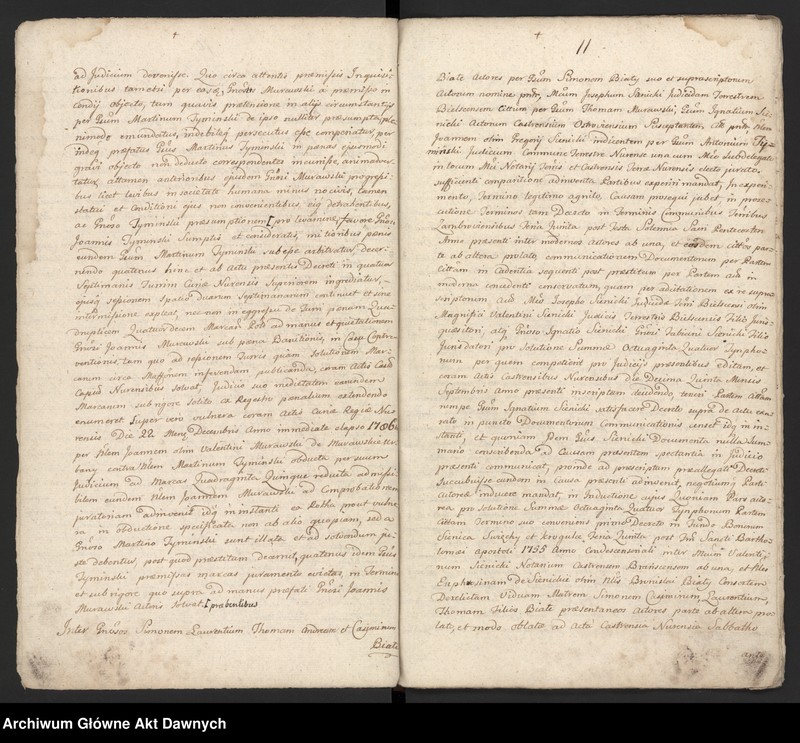 ad Judicium devenisse. Quo circa attentis præmissis Inquisi-
tionibus tametsi per easq Gnosus Murawski a præmisso in
condij objecto, tum quavis prætensione in alijs circumstantijs
per Gsum Martinum Tyminski de ipso nulliter præsumpta,
nimodo emundetur, indebiteq persecutus esse comperiatur, per
indeq præfatus Gsus Martinus Tyminski in pænas ejusmodi
gravis objecto non deducto correspondentes incurisse, animadver-
tatur, attamen anterioribus ejusdem Gnosi Murawski progressi-
bus licet levibus in societate humana minus nocivis, tamen
statui et conditioni ejus non convenientibus, eiq detrahentibus,
ac Gnoso Tyminski præsumptionem [pro levamine, favore Gnosi
Joannis Tyminski sumptis et consideratis, mitioribus pænis
eundem Gsum Martinum Tyminski subesse arbitratur, decer-
nendo quatenus hinc et ab Actu præsentis Decreti in quatuor
Septimanis Turrim Curiæ Nurensis Superiorem ingrediatur,
ejusq sessionem spatio Duarum Septimanarum continuet et sine
intermissione expleat, nec non in egressu de Turri pænam Qua-
druplicem Quatuordecem Marcas Poli ad manus et quietationem
Gnosi Joannis Murawski sub pæna Banitionis in Casu Contra-
ventionis, tam quo ad sessionem Turris quam solutionem Mar-
carum circa inferendam publicanda, coram Actis Castr
Capit Nurensibus solvat, Judicio suo medietatem earundem
Marcarum sub rigore solito ex Registro pænalium extendendo
enumeret. Super vero vulnera coram Actis Curiæ Regiæ Nu-
rensis Die 22 Mens Decembris Anno immediate elapso 1786
per Nlem Joannem olim Valentini Murawski de Murawskie
bany contra Nlem Martinum Tyminski obducta per suum
Judicium ad Marcas Quadraginta Quinque reducta admissi-
bilem eundem Nlem Joannem Murawski ad Comprobationem
juratoriam adinvenit idq in instanti ex Rotha prout vulne
ra in obductione specificata non ab alio quopiam, sed a
Gnoso Martino Tyminski sunt illata et ad solvendum ju-
ste debentur, post quod præstitum decernit, quatenus idem Gsus
Tyminski præmissas marcas juramento evictas in Termino
et sub rigore quo supra ad manus præfati Gnosi Joannis
Murawski Actoris solvat. [præsentibus
Inter Gnosos Simonem Laurentium Thomam Andream et Casimirum
Biate
11
Biate Actores per Gsum Simonem Biaty suo et suprascriptorum
Actorum nomine pntr, Mcum Josephum Sienicki Judicidam Terrestrem
Bielscensem Citum per Gsum Thomam Murawski, Gsum Ignatium Sie-
nicki Actorum Castrensium Ostroviensium Susceptantem, Citt pntr, Nlem
Joannem olim Gregorij Sienicki indicentem per Gsum Antonium Ty-
minski Judicium Commune Terrestre Nurense una cum Mco Subdelegato
in locum Mci Notarij Terris et Castrensis Terræ Nurensis electo jurato,
sufficienti comparitione adinventa Partibus experiri mandat, In experi-
mento, Termino legitimo agnito, Causam prosequi jubet, in prose-
cutione Terminos tam Decreto in Terminis Communibus Terribus
Zambroviensibus Feria Quinta post Festa Solemnia Sacri Pentecosten
Anno præsenti inter modernos Actores ab una, et eosdem Cittos par-
te ab altera prolato communicationem Documentorum per Partem
Cittam in Cadentia sequenti post præstitum per Partem Aam in
moderna cavedenti conservatum, quam per aditationem ex re supra
scriptorum Aum Mco Josepho Sienicki Judicidæ Terri Bielscensi olim
Magnifici Valentini Sienicki Judicis Terrestris Bielscensis Filio Juris-
quæsitori, alq Gnoso Ignatio Sienicki Gnosi Fabiani Sienicki Filio
Jurisdatori pro solutione Summæ Octuaginta Quatuor Tynpho-
rum per quem competent pro Judicijs præsentibus editam, et
coram Actis Castrensibus Nurensibus Die Decima Quinta Mensis
Septembris Anno præsenti inscriptam decidendo teneri Partem Cittam
nempe Gsum Ignatium Sienicki satisfacere Decreto supra de Actu exa-
rato in puncto Documentorum Communicationis censet idq in in-
stanti, et quoniam Idem Gsus Sienicki Documenta nulla Sum-
mario conscribenda ad Causam præsentem spectantia in Judicio
præsenti communicat, proinde ad præscriptum præallegati Decreti
Succubuisse eundem in Causa præsenti adinvenit, negotiumq Parti
Actoreæ inducere mandat, in Inductione cujus Quoniam Pars acto-
rea pro solutione Summæ Octuaginta Quatuor Tynphorum Partem
Cittam Termino suo conveniens primo Decreto in Fundo Bonorum
Sienica Swiechy et Krugule Feria Quinta post Fsti Sancti Bartho-
lomæi Apostoli 1735 Anno Condescensionali inter Mcum Valenti-
num Sienicki Notarium Castrensem Branscensem ab una, et Nles
Euphrosinam de Sienickie olim Nlis Bronislai Biaty Consortem
Derelictam Viduam Matrem Simonem Casimirum, Laurentium,
Thomam Filios Biate præsentaneos Actores parte ab altera pro-
lati, et modo oblato ad Acta Castrensia Nurensia Sabbatho
ante
Archiwum Główne Akt Dawnych